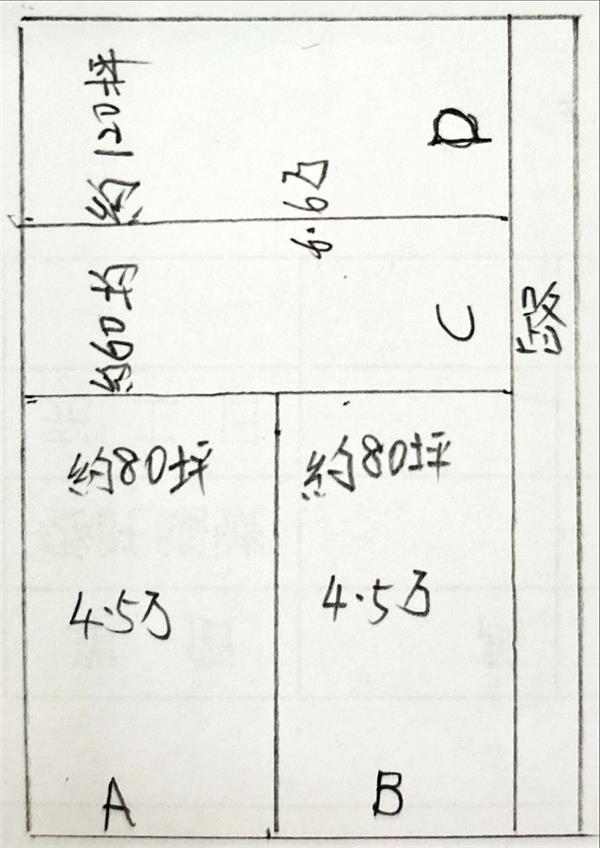 約120坪
D
6.6万
約60坪
C
路
約80坪
4.5万
A
約80坪
4.5万
B